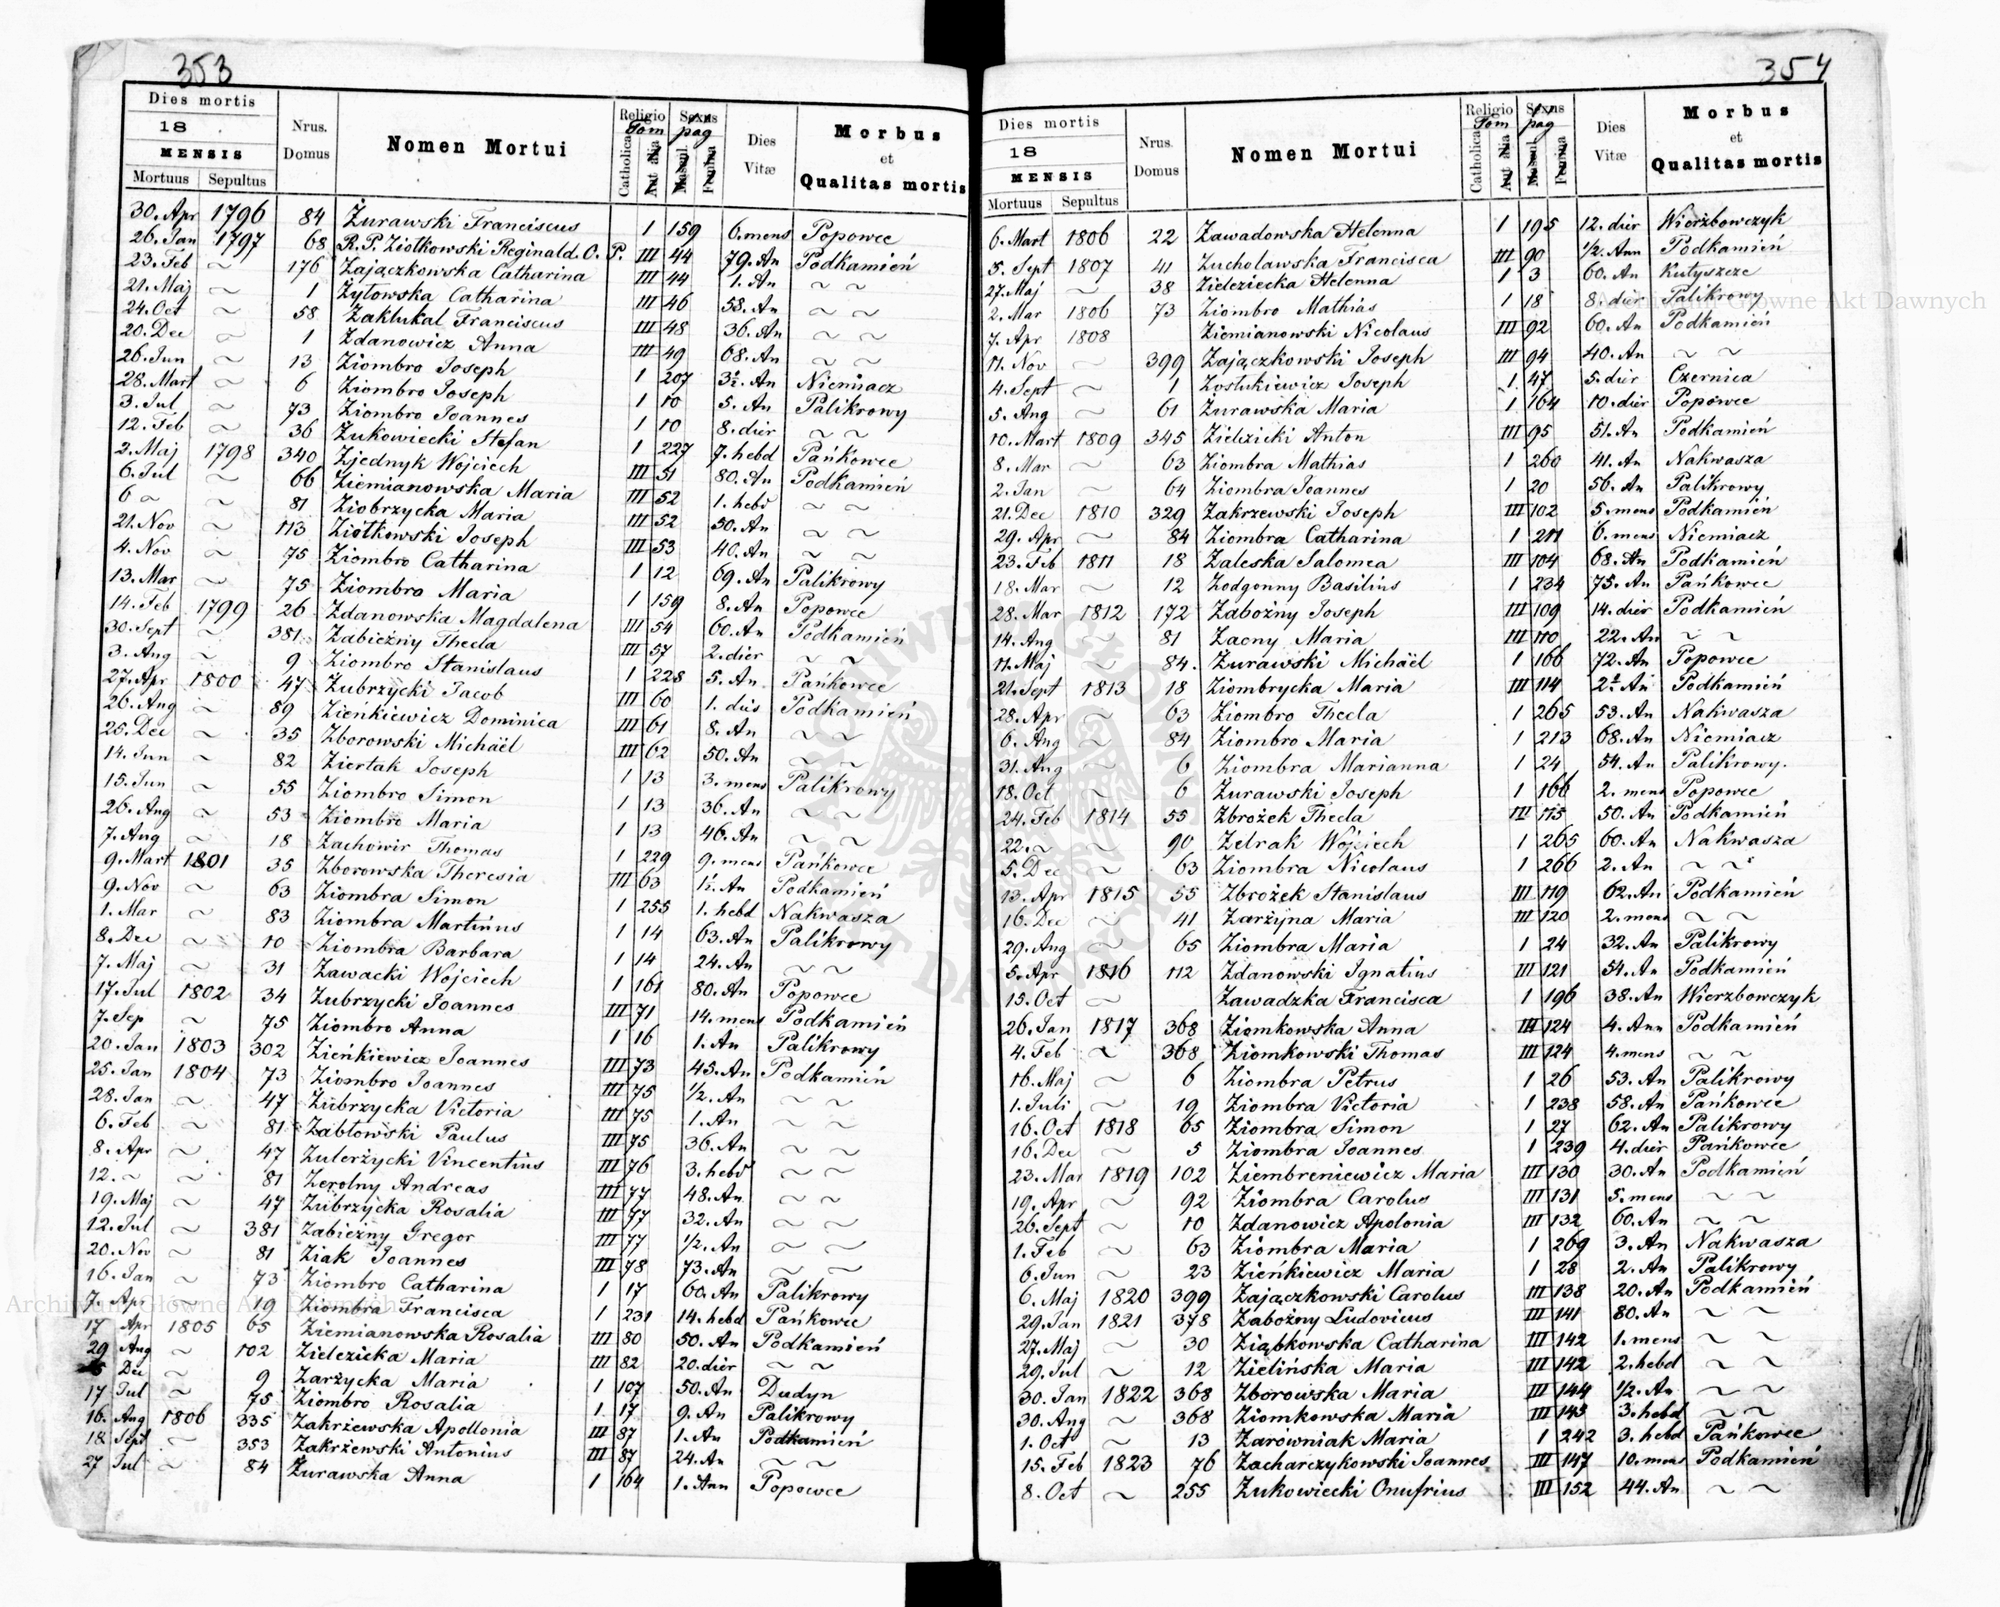 353
Dies mortis
18
MENSIS
Mortuus Sepultus
Nrus. Domus
Nomen Mortui
Religio
Tom
Catholica
Aut alia
Sexus
pag
Mascul.
Femina
Dies Vitæ
Morbus et Qualitas mortis
30. Apr 1796 84 Żurawski Franciscus I 159 6. mens Popowce
26. Jan 1797 68 R. P. Ziotkowski Reginald. O. P. III 44 79. An Podkamień
23. Feb ~ 176 Zajączkowska Catharina III 44 1. An ~ ~
21. Maj ~ 1 Żytowska Catharina III 46 58. An ~ ~
24. Oct ~ 58 Zaklukal Franciscus III 48 36. An ~ ~
20. Dec ~ 1 Zdanowicz Anna III 49 68. An ~ ~
26. Jun ~ 13 Ziombro Joseph I 207 3½. An Niemiacz
28. Mart ~ 6 Ziombro Joseph I 10 5. An Palikrowy
3. Jul ~ 73 Ziombro Joannes I 10 8. dier ~ ~
12. Feb ~ 36 Żukowiecki Stefan I 227 7. hebd Pańkowce
2. Maj 1798 340 Zjednyk Wojciech III 51 80. An Podkamień
6. Jul ~ 66 Ziemianowska Maria III 52 1. hebd ~ ~
6 ~ ~ 81 Ziobrzycka Maria III 52 50. An ~ ~
21. Nov ~ 113 Ziółkowski Joseph III 53 40. An ~ ~
4. Nov ~ 75 Ziombro Catharina I 12 69. An Palikrowy
13. Mar ~ 75 Ziombro Maria I 159 8. An Popowce
14. Feb 1799 26 Zdanowska Magdalena III 54 60. An Podkamień
30. Sept ~ 381 Zabieżny Thecla III 57 2. dier ~ ~
3. Aug ~ 9 Ziombro Stanislaus I 228 5. An Pańkowce
27. Apr 1800 47 Zubrzycki Jacob III 60 1. dies Podkamień
26. Aug ~ 89 Zieńkiewicz Dominica III 61 8. An ~ ~
25. Dec ~ 35 Zborowski Michaël III 62 50. An ~ ~
14. Jun ~ 82 Ziertak Joseph I 13 3. mens Palikrowy
15. Jun ~ 55 Ziombro Simon I 13 36. An ~ ~
26. Aug ~ 53 Ziombro Maria I 13 46. An ~ ~
7. Aug ~ 18 Zachowir Thomas I 229 9. mens Pańkowce
9. Mart 1801 35 Zborowska Theresia III 63 1½. An Podkamień
9. Nov ~ 63 Ziombra Simon I 255 1. hebd Nakwasza
1. Mar ~ 83 Ziombra Martinus I 14 63. An Palikrowy
8. Dec ~ 10 Ziombra Barbara I 14 24. An ~ ~
7. Maj ~ 31 Zawacki Wojciech I 161 80. An Popowce
17. Jul 1802 34 Zubrzycki Joannes III 71 14. mens Podkamień
7. Sep ~ 75 Ziombro Anna I 16 1. An Palikrowy
20. Jan 1803 302 Zieńkiewicz Joannes III 73 45. An Podkamień
25. Jan 1804 73 Ziombro Joannes III 75 1/2. An ~ ~
28. Jan ~ 47 Zubrzycka Victoria III 75 1. An ~ ~
6. Feb ~ 81 Zabłowski Paulus III 75 36. An ~ ~
8. Apr ~ 47 Zulerzycki Vincentius III 76 3. hebd ~ ~
12. ~ ~ 81 Zerolny Andreas III 77 48. An ~ ~
19. Maj ~ 47 Zubrzycka Rosalia III 77 32. An ~ ~
12. Jul ~ 381 Zabieżny Gregor III 77 1/2. An ~ ~
20. Nov ~ 81 Ziak Joannes III 78 73. An ~ ~
16. Jan ~ 73 Ziombro Catharina I 17 60. An Palikrowy
7. Apr ~ 19 Ziombra Francisca I 231 14. hebd Pańkowce
17 Apr 1805 65 Ziemianowska Rosalia III 80 50. An Podkamień
29 Aug ~ 102 Zieleziecka Maria III 82 20. dier ~ ~
Dec ~ 9 Zarzycka Maria I 107 50. An Dudyn
17 Jul ~ 75 Ziombro Rosalia I 17 9. An Palikrowy
16. Aug 1806 335 Zakrzewska Apollonia III 87 1. An Podkamień
18 Sept ~ 353 Zakrzewski Antonius III 87 24. An ~ ~
27 Jul ~ 84 Żurawska Anna I 164 1. Ann Popowce
354
Dies mortis
18
MENSIS
Mortuus Sepultus
Nrus. Domus
Nomen Mortui
Religio
Tom
Catholica
Aut alia
Sexus
pag
Mascul.
Femina
Dies Vitæ
Morbus et Qualitas mortis
6. Mart 1806 22 Zawadowska Helenna I 195 12. dier Wierzbowczyk
5. Sept 1807 41 Zucholawska Francisca III 90 1/2. Ann Podkamień
27. Maj ~ 38 Zieleziecka Helenna I 3 60. An Kutyszcze
2. Mar 1806 73 Ziombro Mathias I 18 8. dier Palikrowy
7. Apr 1808 Ziemianowski Nicolaus III 92 60. An Podkamień
11. Nov ~ 399 Zajączkowski Joseph III 94 40. An ~ ~
4. Sept ~ 1 Zostukiewicz Joseph I 47 5. dier Czernica
5. Aug ~ 61 Żurawska Maria I 164 10. dier Popowce
10. Mart 1809 345 Zielezicki Anton III 95 51. An Podkamień
8. Mar ~ 63 Ziombra Mathias I 260 41. An Nakwasza
2. Jan ~ 64 Ziombra Joannes I 20 56. An Palikrowy
21. Dec 1810 329 Zakrzewski Joseph III 102 5. mens Podkamień
29. Apr ~ 84 Ziombra Catharina I 211 6. mens Niemiacz
23. Feb 1811 18 Zaleska Salomea III 104 68. An Podkamień
18. Mar ~ 12 Zodgonny Basilius I 234 75. An Pańkowce
28. Mar 1812 172 Zabożny Joseph III 109 14. dier Podkamień
14. Aug ~ 81 Zaony Maria III 110 22. An ~ ~
11. Maj ~ 84. Żurawski Michaël I 166 72. An Popowce
21. Sept 1813 18 Ziombrycka Maria III 114 2½. An Podkamień
28. Apr ~ 63 Ziombro Thecla I 265 53. An Nakwasza
6. Aug ~ 84 Ziombro Maria I 213 68. An Niemiacz
31. Aug ~ 6 Ziombra Marianna I 24 54. An Palikrowy.
18. Oct ~ 6 Żurawski Joseph I 166 2. mens Popowce
24. Feb 1814 55 Zbrożek Thecla III 115 50. An Podkamień
22. ~ ~ 90 Zelrak Wojciech I 265 60. An Nakwasza
5. Dec ~ 63 Ziombra Nicolaus I 266 2. An ~ ~
13. Apr 1815 55 Zbrożek Stanislaus III 119 62. An Podkamień
16. Dec ~ 41 Zarzyna Maria III 120 2. mens ~ ~
29. Aug ~ 65 Ziombra Maria I 24 32. An Palikrowy
5. Apr 1816 112 Zdanowski Ignatius III 121 54. An Podkamień
15. Oct ~ Zawadzka Francisca I 196 38. An Wierzbowczyk
26. Jan 1817 368 Ziomkowska Anna III 124 4. Ann Podkamień
4. Feb ~ 368 Ziomkowski Thomas III 124 4. mens ~ ~
16. Maj ~ 6 Ziombra Petrus I 26 53. An Palikrowy
1. Juli ~ 19 Ziombra Victoria I 238 58. An Pańkowce
16. Oct 1818 65 Ziombra Simon I 27 62. An Palikrowy
16. Dec ~ 5 Ziombra Joannes I 239 4. dier Pańkowce
23. Mar 1819 102 Ziembreniewicz Maria III 130 30. An Podkamień
19. Apr ~ 92 Ziombra Carolus III 131 5. mens ~ ~
26. Sept ~ 10 Zdanowicz Apolonia III 132 60. An ~ ~
1. Feb ~ 63 Ziombra Maria I 269 3. An Nakwasza
6. Jun ~ 23 Zieńkiewicz Maria I 28 2. An Palikrowy
6. Maj 1820 399 Zajączkowski Carolus III 138 20. An Podkamień
29. Jan 1821 378 Zabożny Ludovicus III 141 80. An ~ ~
27. Maj ~ 30 Ziąbkowska Catharina III 142 1. mens ~ ~
29. Jul ~ 12 Zielińska Maria III 142 2. hebd ~ ~
30. Jan 1822 368 Zborowska Maria III 144 1/2. An ~ ~
30. Aug ~ 368 Ziomkowska Maria III 145 3. hebd ~ ~
1. Oct ~ 13 Zarówniak Maria I 242 3. hebd Pańkowce
15. Feb 1823 76 Zacharczykowski Joannes III 147 10. mens Podkamień
8. Oct ~ 255 Żukowiecki Onufrius III 152 44. An ~ ~
Archiwum Główne Akt Dawnych
Archiwum Główne Akt Dawnych
ARCHIWUM GŁÓWNE AKT DAWNYCH